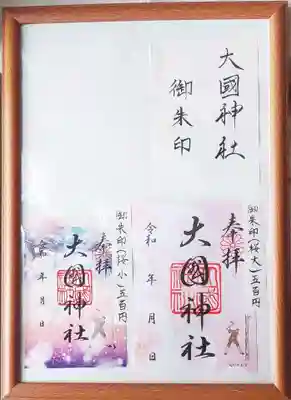 大國神社
御朱印
御朱印(桜大)五百円
奉拝
大國神社
令和 年 月 日
御朱印(桜小)五百円
奉拝
大國神社
令和 年 月 日